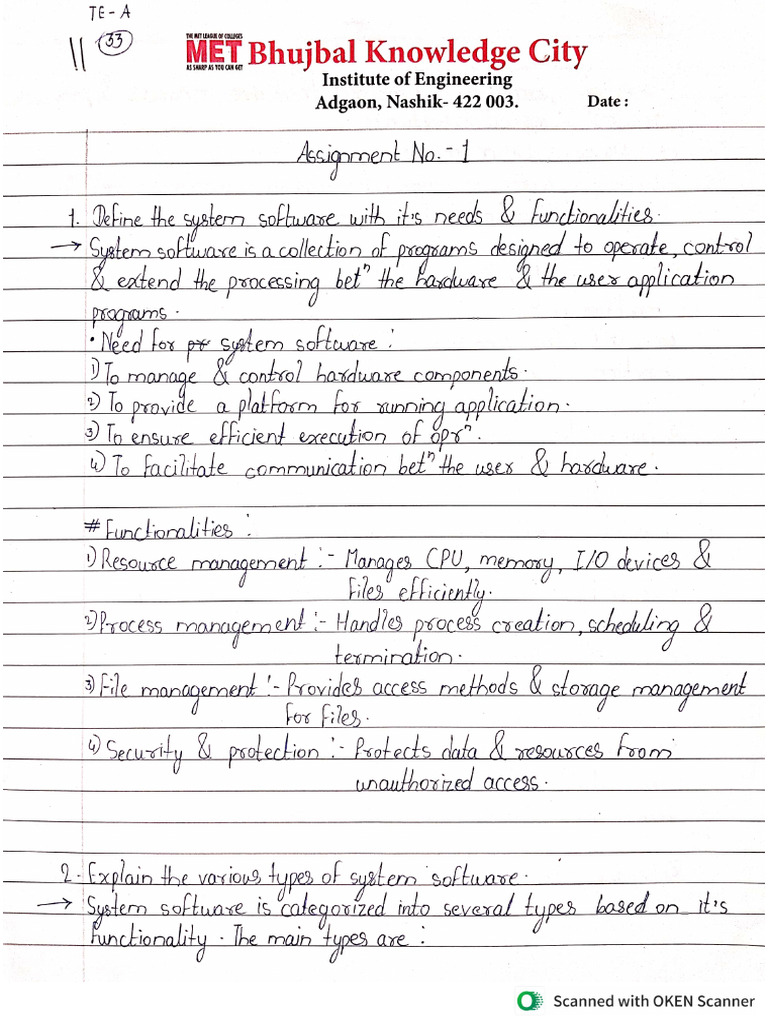 TE - A
11 33
THE MET LEAGUE OF COLLEGES
MET Bhujbal Knowledge City
AS SHARP AS YOU CAN GET
Institute of Engineering
Adgaon, Nashik- 422 003. Date :
Assignment No. - 1
1. Define the system software with it's needs & functionalities.
→ System software is a collection of programs designed to operate, control
& extend the processing betⁿ the hardware & the user application
programs.
• Need for pr system software :
1) To manage & control hardware components.
2) To provide a platform for running application.
3) To ensure efficient execution of oprⁿ.
4) To facilitate communication betⁿ the user & hardware.
# Functionalities :
1) Resource management :- Manages CPU, memory, I/O devices &
files efficiently.
2) Process management :- Handles process creation, scheduling &
termination.
3) File management :- Provides access methods & storage management
for files.
4) Security & protection :- Protects data & resources from
unauthorized access.
2. Explain the various types of system software.
→ System software is categorized into several types based on it's
functionality. The main types are :
Scanned with OKEN Scanner